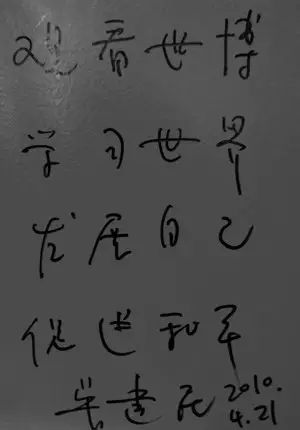 观看世博
学习世界
发展自己
促进和平
吴建民 2010.
4.21